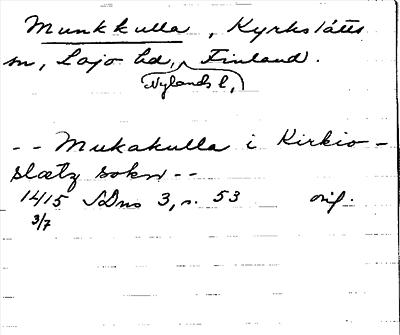 Munkkulla, Kyrkslätts
sn, Lojo hd, Finland.
Nylands l,
-- Mukakulla i Kirkio-
slætz sokn --
1415 SDns 3, s. 53 orig.
3/7